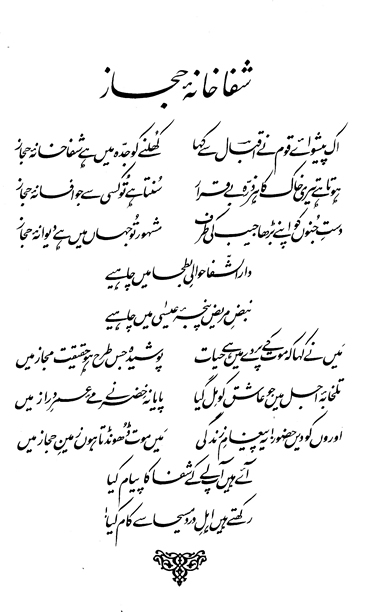 شفاخانۂ حجاز
اک پیشوائے قوم نے اقبال سے کہا کھلنے کو جدہ میں ہے شفاخانۂ حجاز
ہوتا ہے تیری خاک کا ہر ذرہ بے قرار سنتا ہے تو کسی سے جو افسانۂ حجاز
دستِ جنوں کو اپنے بڑھا جیب کی طرف مشہور تو جہاں میں ہے دیوانۂ حجاز
دارالشفا حوالیِ بطحا میں چاہیے
نبضِ مریض پنجۂ عیسیٰ میں چاہیے
میں نے کہا کہ موت کے پردے میں ہے حیات پوشیدہ جس طرح ہو حقیقت مجاز میں
تلخابۂ اجل میں جو عاشق کو مل گیا پایا نہ خضر نے مے عمرِ دراز میں
اوروں کو دیں حضور! یہ پیغامِ زندگی میں موت ڈھونڈتا ہوں زمینِ حجاز میں
آئے ہیں آپ لے کے شفا کا پیام کیا
رکھتے ہیں اہلِ درد مسیحا سے کام کیا!